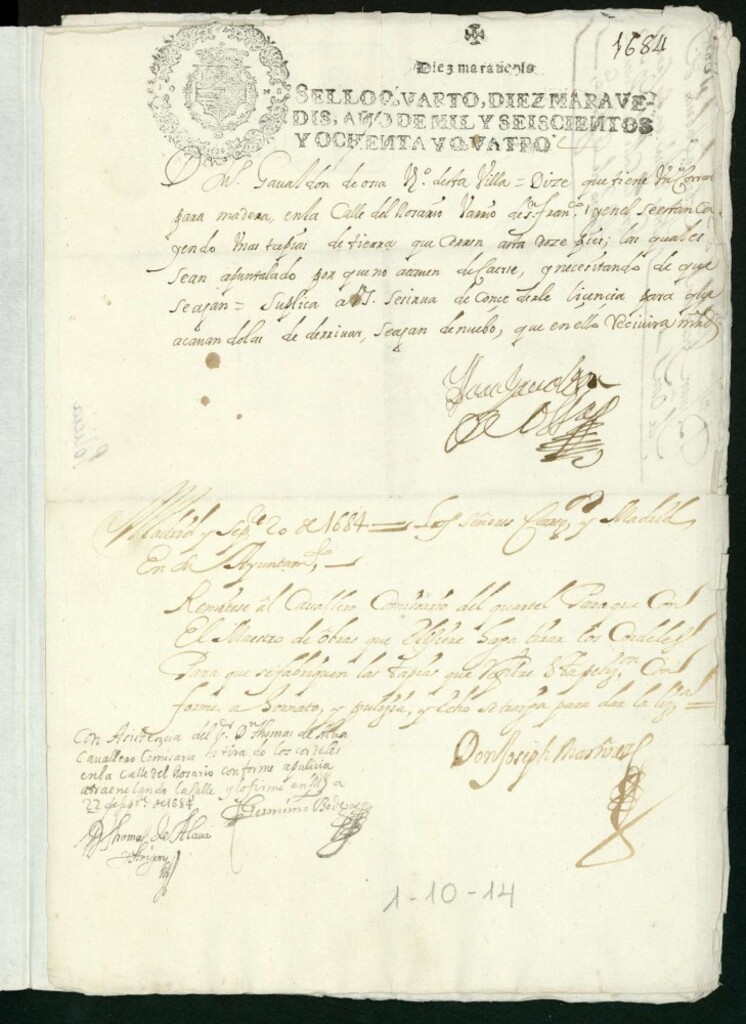 1684
Diez marauedis
SELLO QVARTO, DIEZ MARAVE-
DIS, AÑO DE MIL Y SEISCIENTOS
Y OCHENTA Y QVATRO
Gavaldon de osa Vº. desta Villa = Dize que tiene Un Corral
para madera, en la Calle del Rosario Varrio de Sn. franco. y en el se estan ca
yendo Unas tapias de tierra que de asta doze pies; las quales
sean apuntalado por que no acauen de Caerse, y necesitando de que
se agan = Suplica a VS. se sirua de Conce derle licencia para que
acauan dolas de derriuar, se agan de nuebo, que en ello Receuira mrd
de Ossa
Madrid y Sepre. 20 de 1684 = Los Señores y Madrid
En su Ayuntamto.
Remitese al Cauallero Comisario del quartel Para que Con
El Maestro de obras que Elijiere haga tirar los Cordeles
Para que se fabriquen las tapias que Refiere Esta petizon. Con
forme a Hornato, y pulizia, y echo se traiga para dar la liza.
Don Joseph Martinez
Con Asistencia del Sr. Dn. Thomas de Alaua
Cauallero Comisario se tiro los cordeles
en la Calle del Rosario conforme a pulicia
atraenelando la Calle y lo firme en Md. a
22 de Sepre. de 1684
Geronimo
D Thomas de Alaua
Arigon
1-10-14